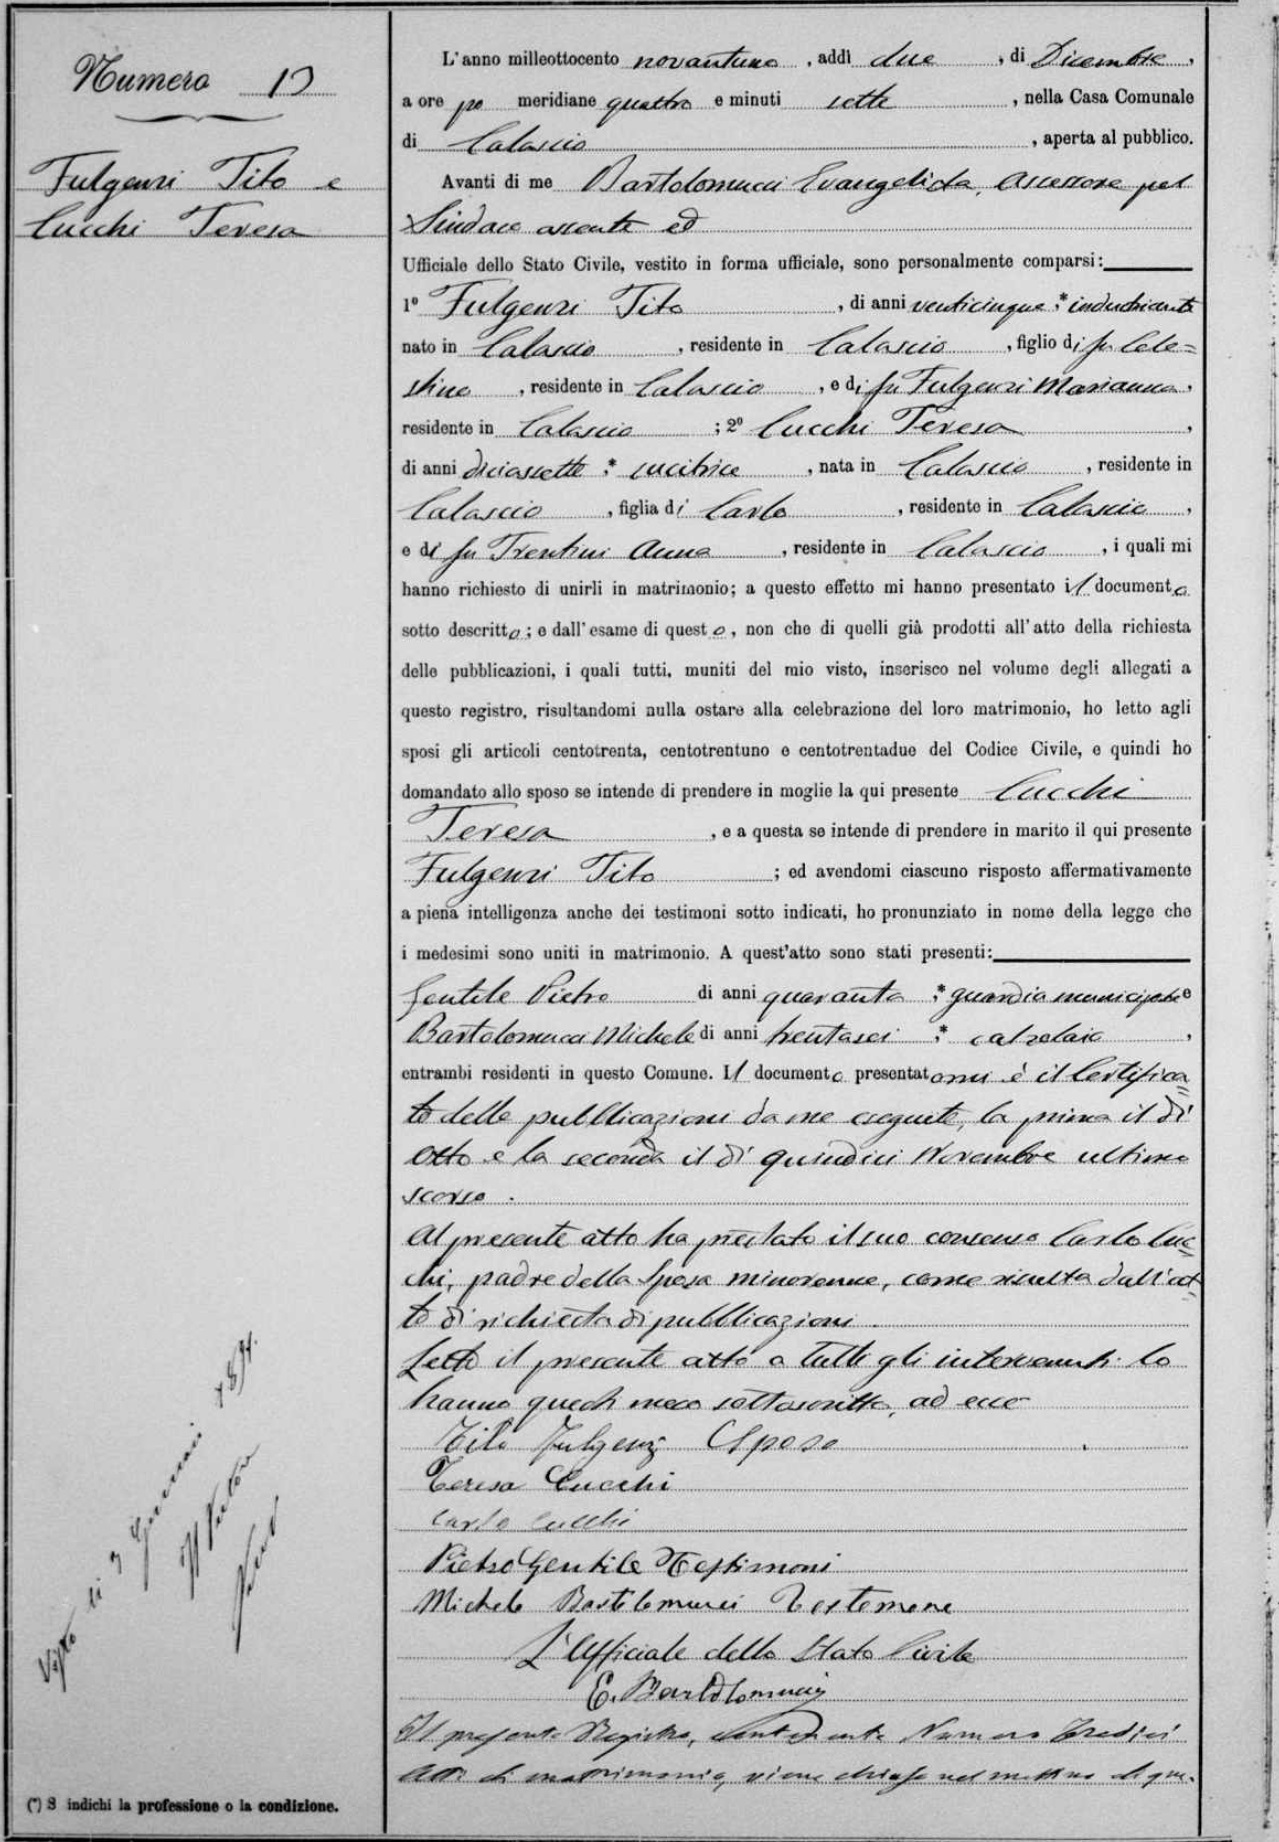 Numero 13
Fulgenzi Tito e
Cucchi Teresa
L'anno milleottocento novantuno, addì due, di Dicembre,
a ore po meridiane quattro e minuti sette, nella Casa Comunale
di Calascio, aperta al pubblico.
Avanti di me Bartolomucci Evangelista, Assessore pel
Sindaco assente ed
Ufficiale dello Stato Civile, vestito in forma ufficiale, sono personalmente comparsi:
1º Fulgenzi Tito, di anni venticinque;* industriante
nato in Calascio, residente in Calascio, figlio di fu Cele=
stino, residente in Calascio, e di fu Fulgenzi Marianna,
residente in Calascio; 2º Cucchi Teresa,
di anni diciassette;* cucitrice, nata in Calascio, residente in
Calascio, figlia di Carlo, residente in Calascio,
e di fu Trentini Anna, residente in Calascio, i quali mi
hanno richiesto di unirli in matrimonio; a questo effetto mi hanno presentato il documento
sotto descritto; e dall'esame di questo, non che di quelli già prodotti all'atto della richiesta
delle pubblicazioni, i quali tutti, muniti del mio visto, inserisco nel volume degli allegati a
questo registro, risultandomi nulla ostare alla celebrazione del loro matrimonio, ho letto agli
sposi gli articoli centotrenta, centotrentuno e centotrentadue del Codice Civile, e quindi ho
domandato allo sposo se intende di prendere in moglie la qui presente Cucchi
Teresa, e a questa se intende di prendere in marito il qui presente
Fulgenzi Tito; ed avendomi ciascuno risposto affermativamente
a piena intelligenza anche dei testimoni sotto indicati, ho pronunziato in nome della legge che
i medesimi sono uniti in matrimonio. A quest'atto sono stati presenti:
Gentile Pietro di anni quaranta;* guardia municipale e
Bartolomucci Michele di anni trentasei;* calzolaio,
entrambi residenti in questo Comune. Il documento presentatomi è il Certifica=
to delle pubblicazioni da me eseguite, la prima il dì
otto e la seconda il dì quindici Novembre ultimo
scorso.
Al presente atto ha prestato il suo consenso Carlo Cuc=
chi, padre della sposa minorenne, come risulta dall'at=
to di richiesta di pubblicazioni.
Letto il presente atto a tutti gli intervenuti lo
hanno questi meco sottoscritto, ad ecce
Tito Fulgenzi Sposo
Teresa Cucchi
Carlo Cucchi
Pietro Gentile Testimoni
Michele Bartolomucci Testemone
L'Ufficiale dello Stato Civile
E. Bartolomucci
Il presente Registro, contenente Numero Tredici
atti di matrimonio, viene chiuso nel mattino di
Visto li 3
Il Pretore
(*) S indichi la professione o la condizione.